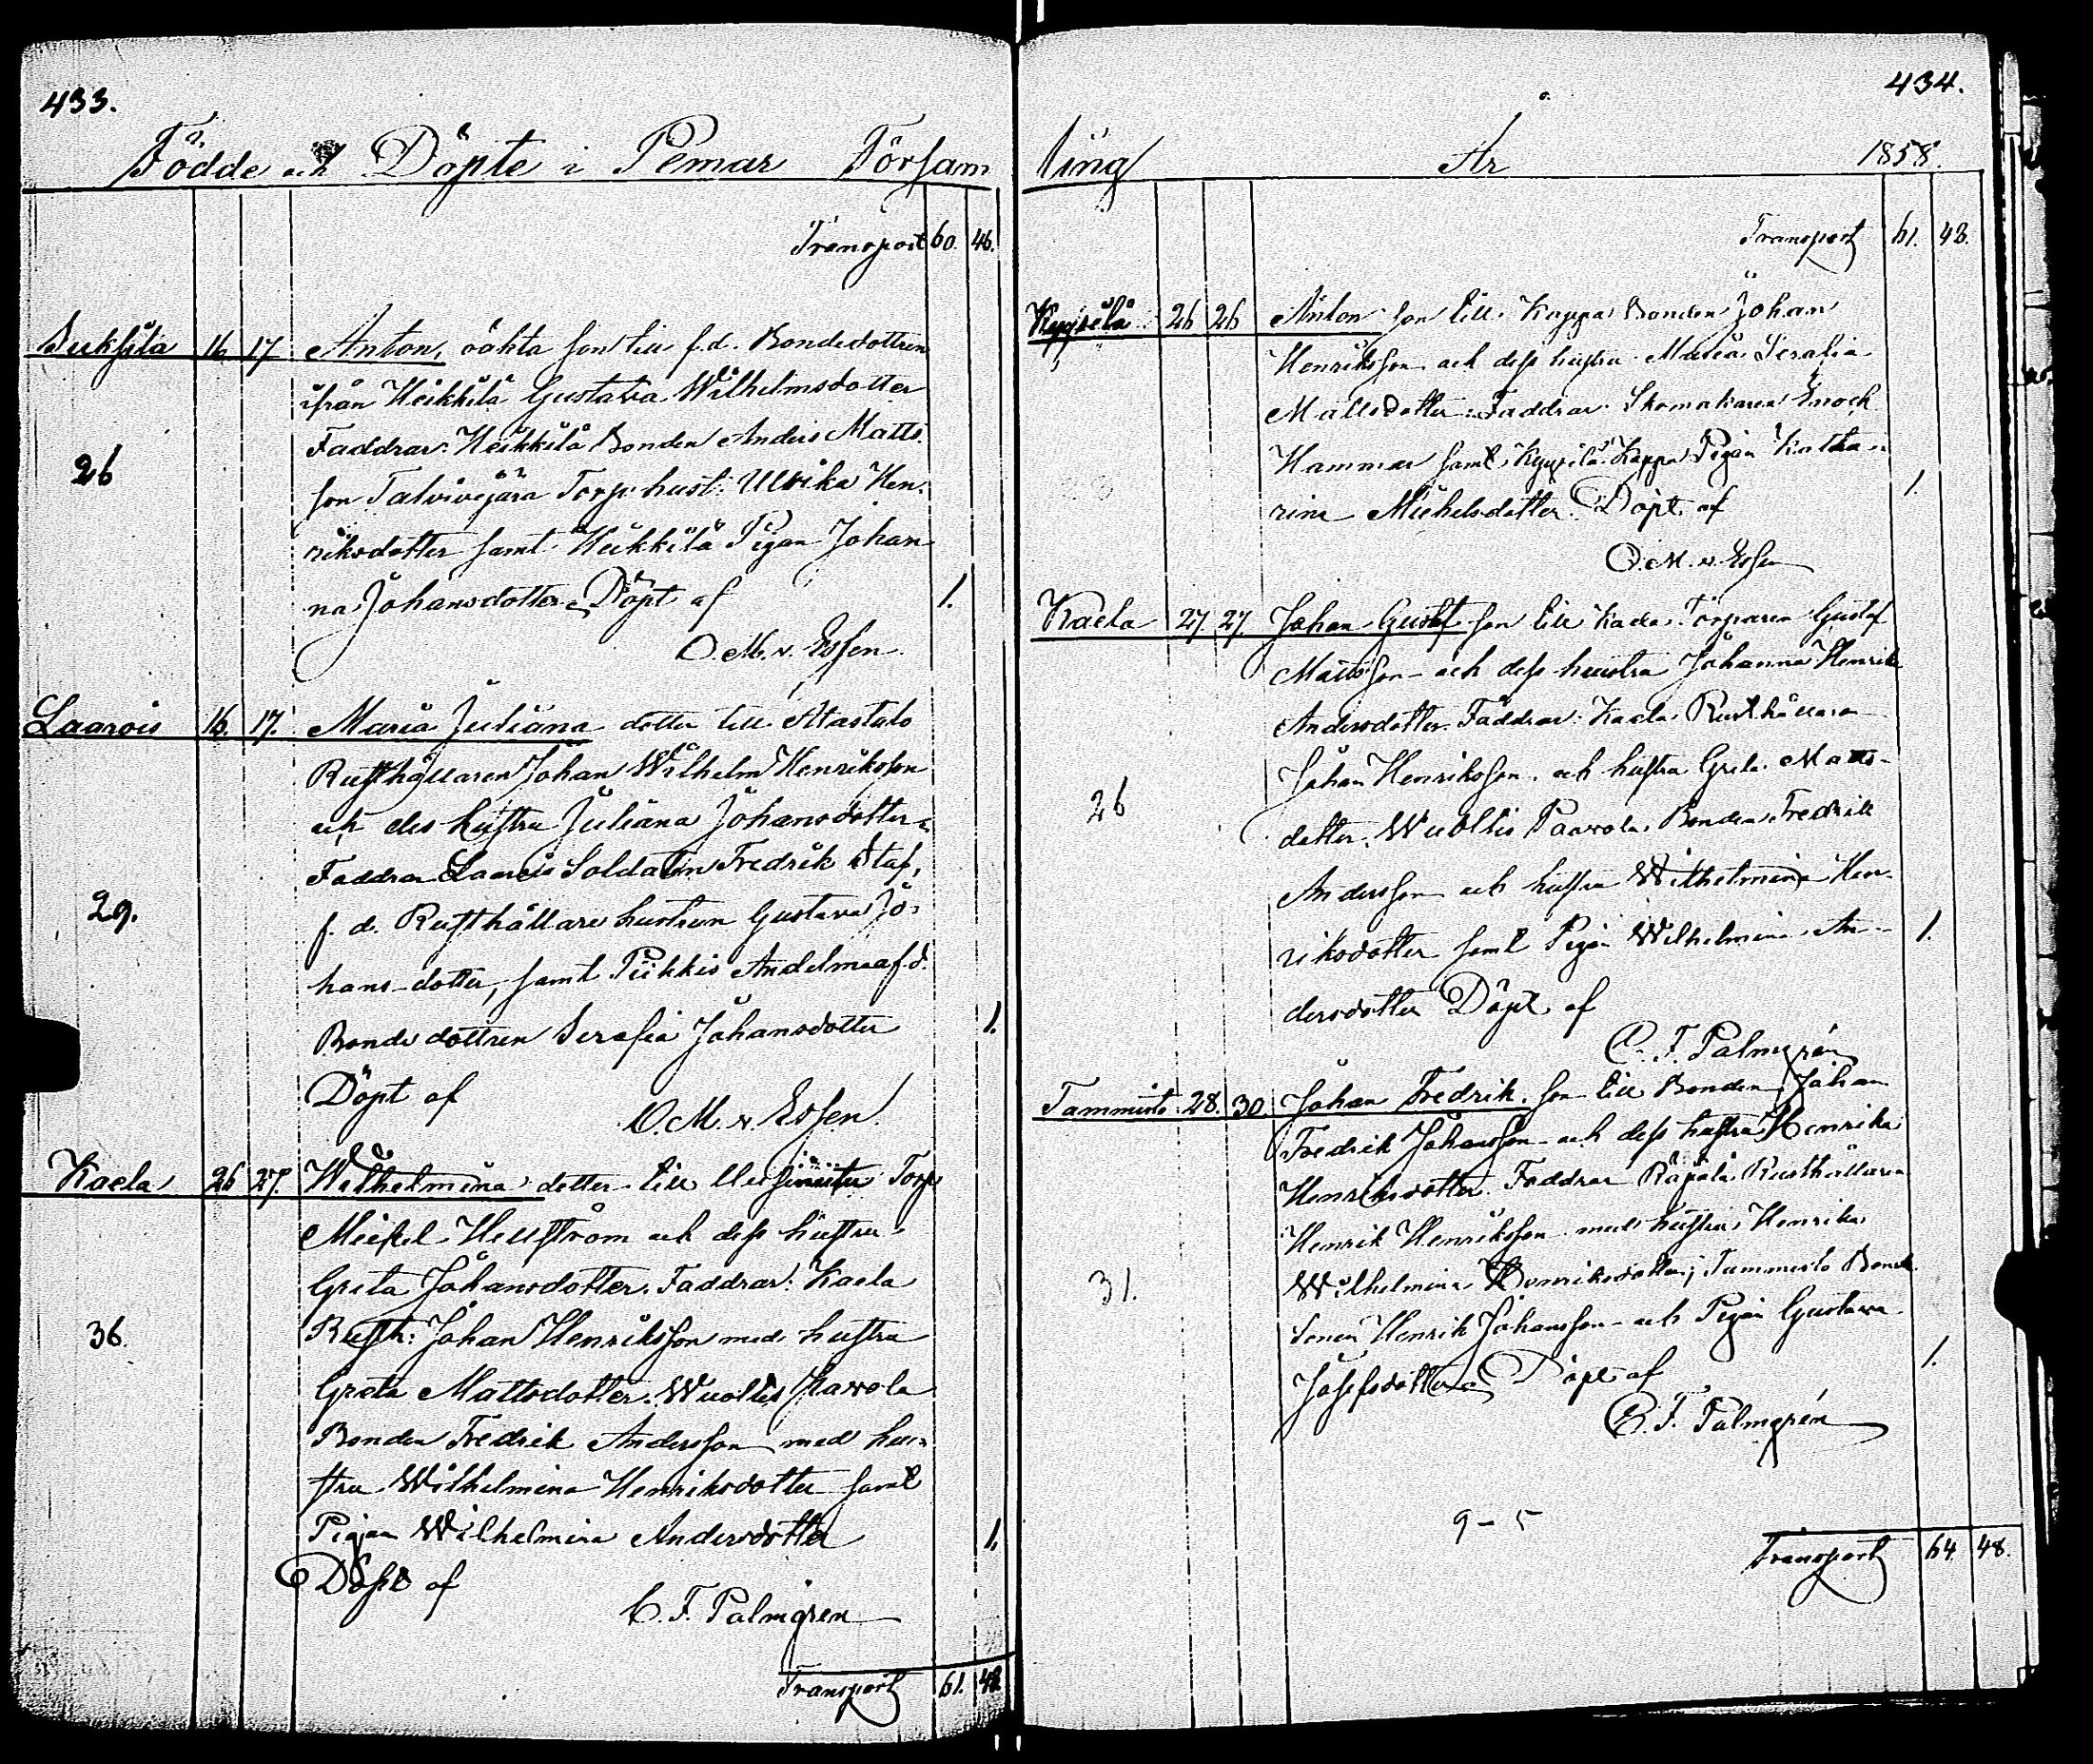 433.
Födde och Döpte i Pemar Försam
Transport 60. 46.
Suksila 16 17 Anton, oäkta son till f.d. Bondedottren
ifrån Heikkilä Gustava Wilhelmsdotter
Faddrar: Heikkilä Bonden Anders Matts
26
son Talvivejära Torp. hust: Ulrika Hen-
riksdotter samt Heikkilä Pigan Johan-
na Johansdotter. Döpt af 1.
O. M. v. Essen.
Laarois 16. 17. Maria Juliana dotter till Atastalo
Rusthållaren Johan Wilhelm Henriksson
och des hustru Juliana Johansdotter.
Faddrar Laarois Soldaten Fredrik Staf,
29. f. d. Rusthållare hustrun Gustava Jo-
hans-dotter, samt Piikkis Andelma f.d.
Bondedottren Serafia Johansdotter 1.
Döpt af
O. M. v. Essen.
Kaela 26 27. Wilhelmina dotter till Torp
Mickel Hellström och dess hustru
Greta Johansdotter. Faddrar: Kaela
36. Rusth: Johan Henriksson med hustru
Greta Mattsdotter. Wuoltis Pavola
Bonden Fredrik Andersson med hu-
stru Wilhelmina Henriksdotter samt
Pigan Wilhelmina Andersdotter 1.
Döpt af
C. F. Palmgren
Transport 61. 48.
434.
ling År 1858.
Transport 61. 48.
Kyysilä 26 26 Anton son till Kappa Bonden Johan
Henriksson och dess hustru Maria Serafia
Mattsdotter. Faddrar: Skomakaren Enoch
Hammar samt Kyysilä Kappa Pigan Katha-
rina Michelsdotter. Döpt af 1.
O. M. v. Essen
Kaela 27. 27. Johan Gustaf son till Kaela Torparen Gustaf
Mattsson och dess hustru Johanna Henrik
Andersdotter. Faddrar: Kaela Rusthållaren
Johan Henriksson och hustru Greta Matts-
26
dotter. Wuoltis Paavola Bonden Fredrik
Andersson och hustru Wilhelmina Hen-
riksdotter samt Pigan Wilhelmina An- 1.
dersdotter Döpt af
C. F. Palmgrén
Tammisto 28. 30 Johan Fredrik. son till Bonden Johan
Fredrik Johansson och dess hustru Henrika
Henriksdotter. Faddrar Räpälä Rusthållaren
Henrik Henriksson med hustru Henrika
31. Wilhelmina Henriksdotter; Tammisto Bonde
Sonen Henrik Johansson och Pigan Gustava
Josefsdotter Döpt af 1.
C. F. Palmgrén
9 - 5
Transport 64 48.